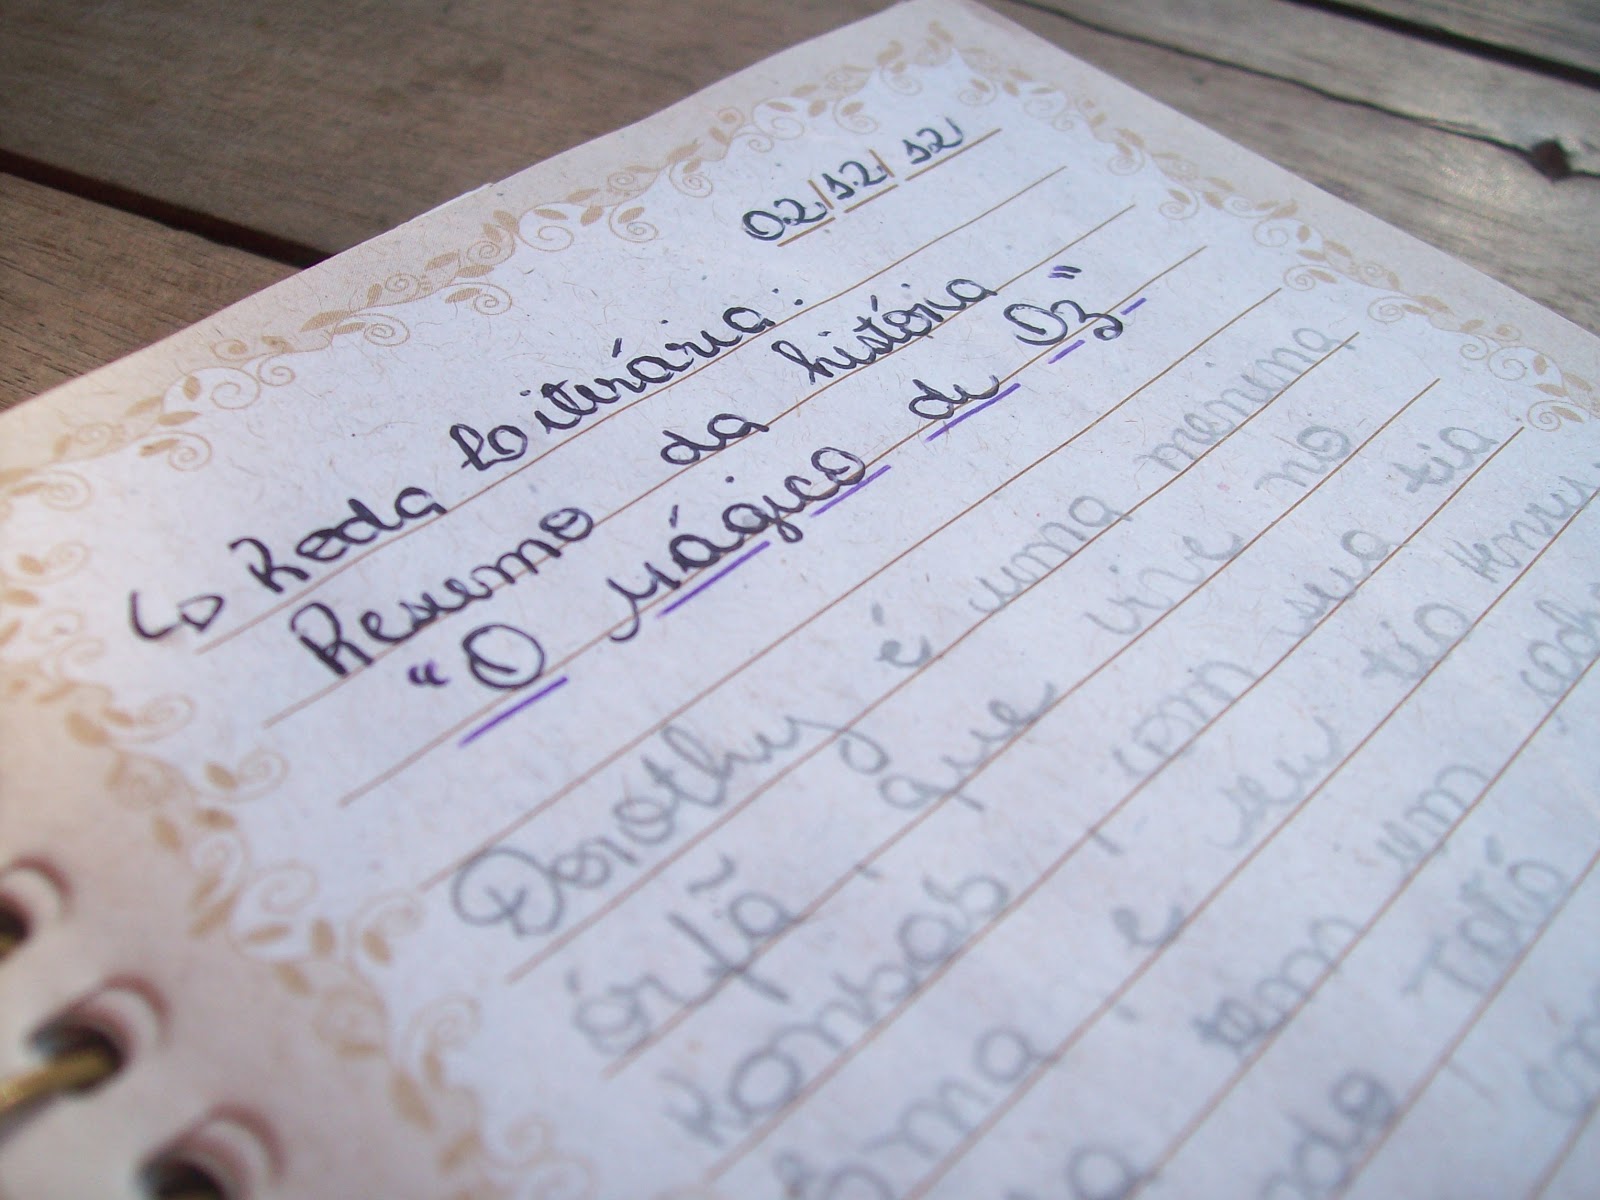 02/12/12
↳ Roda Literária:
Resumo da história
"O Mágico de Oz"
Dorothy é uma menina
órfã, que vive no
Kansas, com sua tia
Ema, e seu tio Henry
tem um
Totó